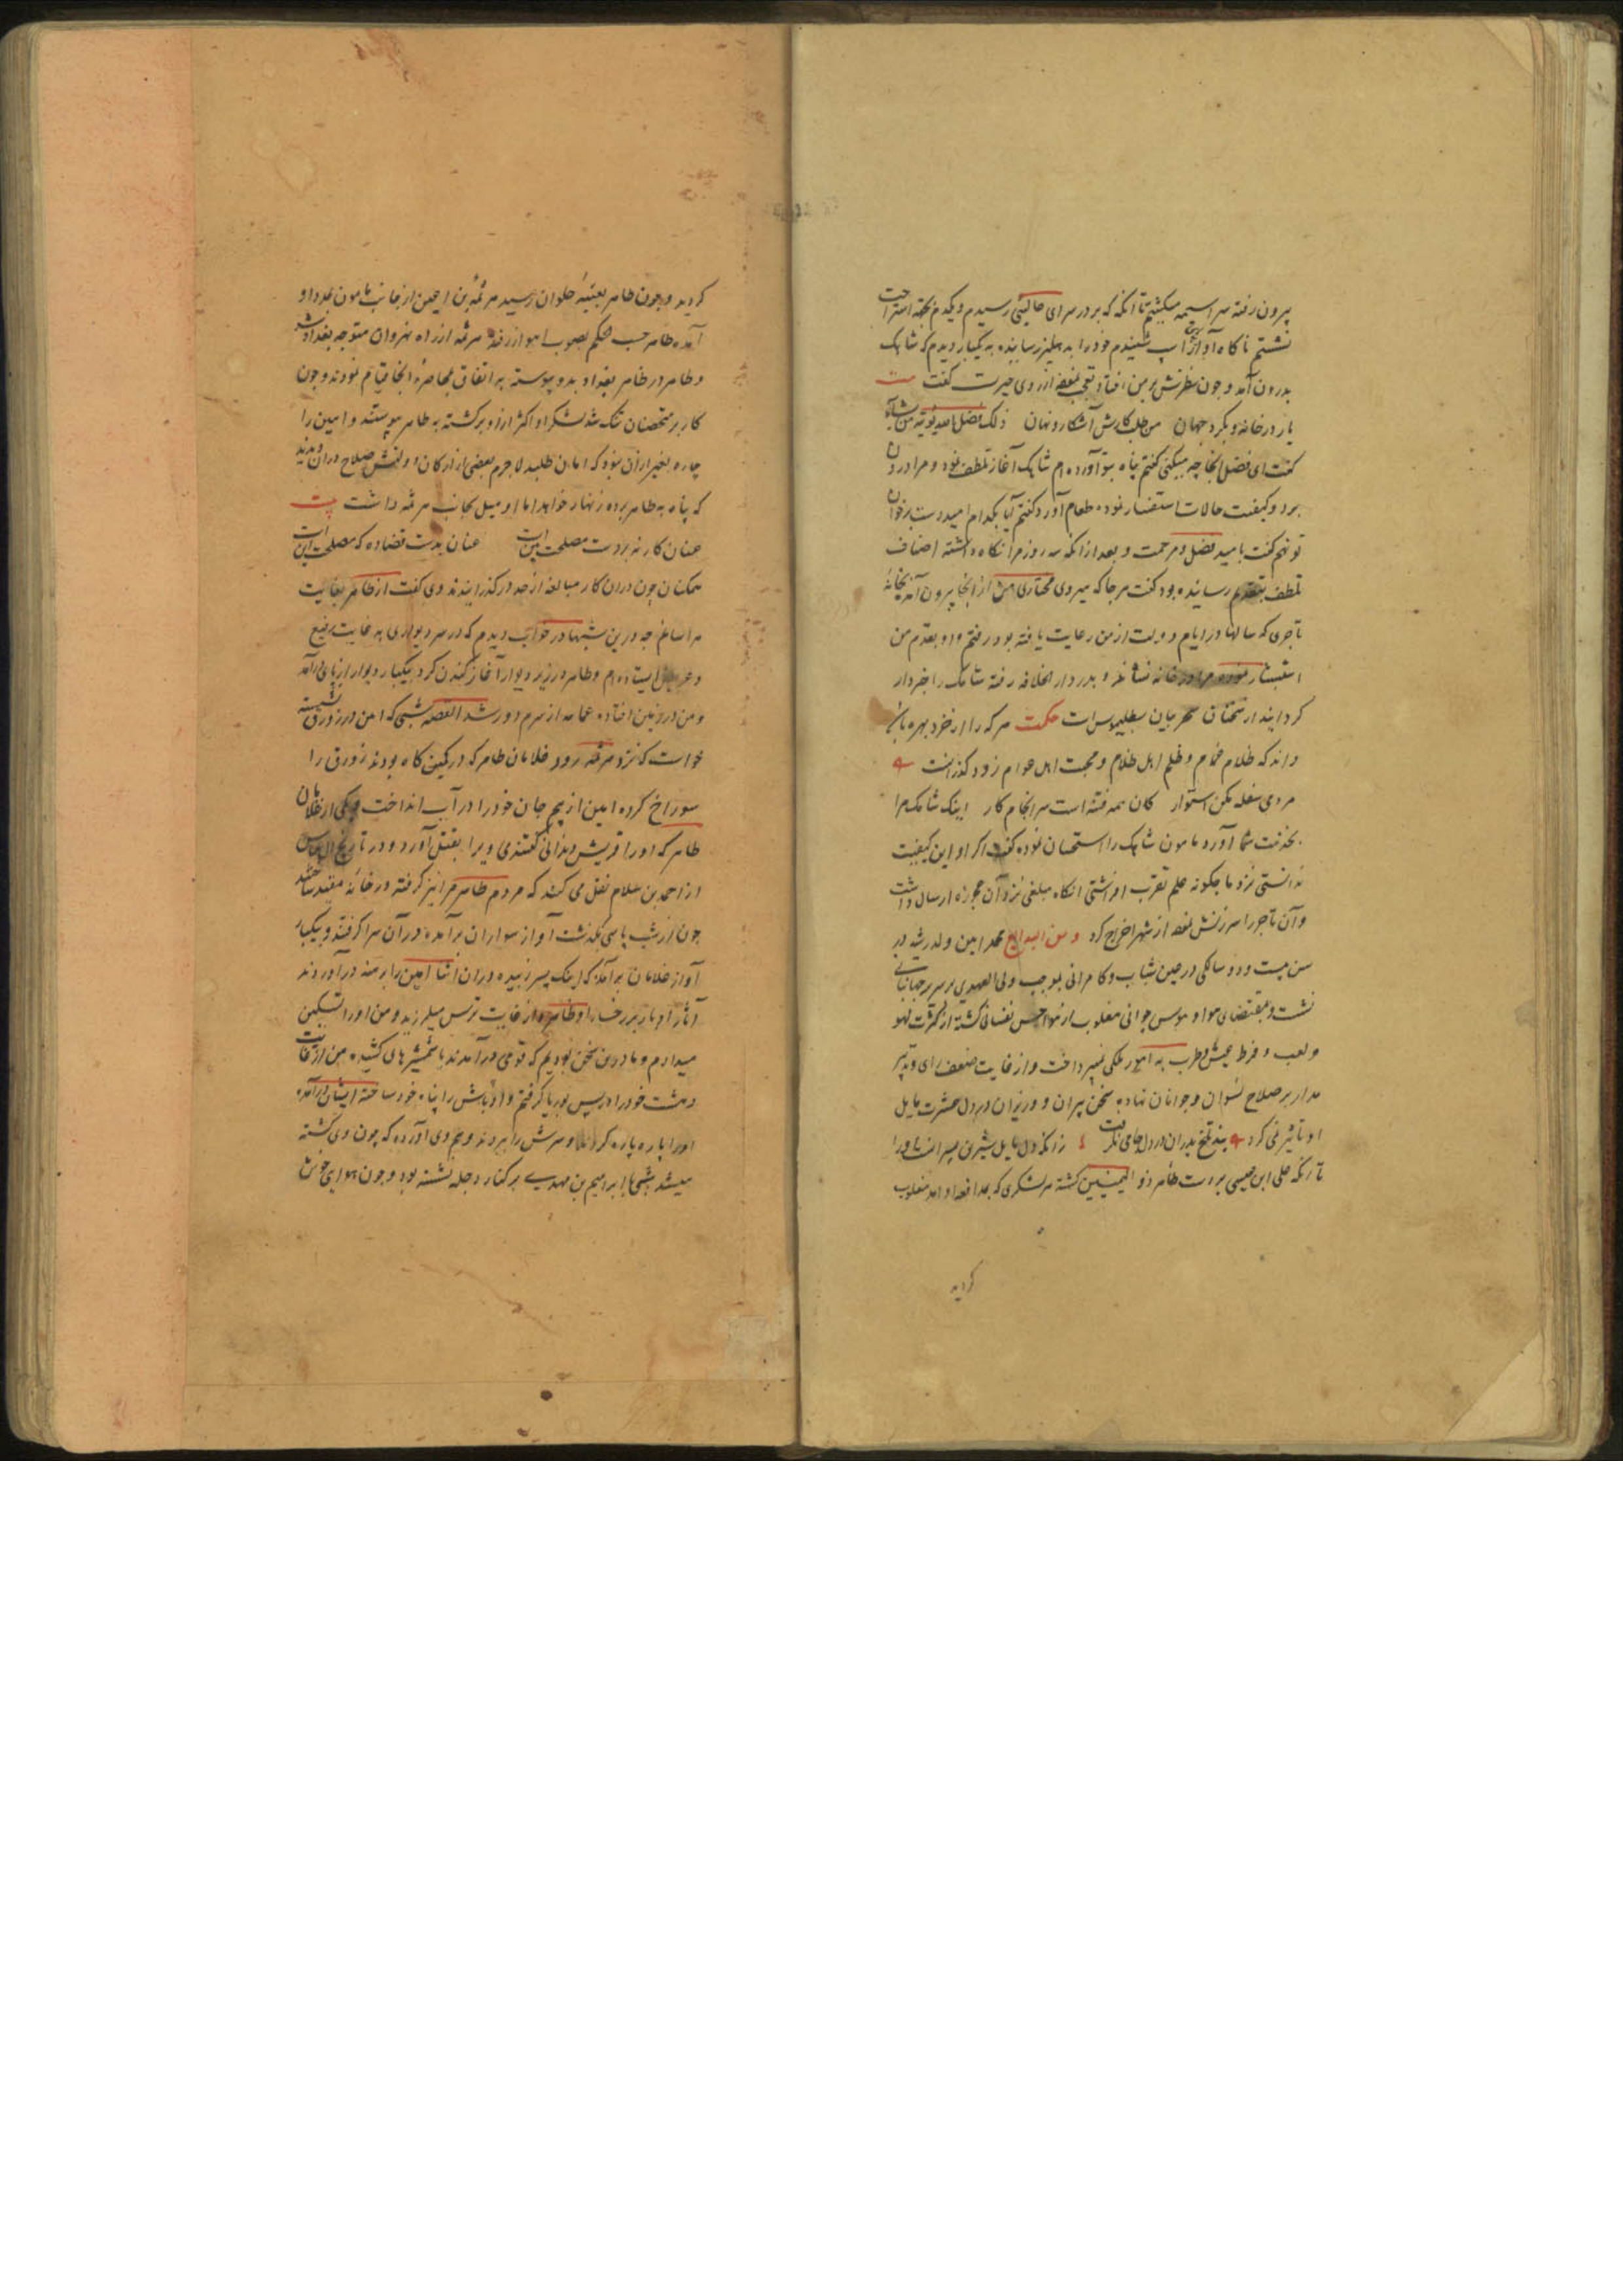 بیرون رفته سراسیمه میکشتم تا آنکه که بر در سرای عالیئی رسیدم و یکدم بجهة استراحت
نشستم ناکاه آواز اسپ شنیدم خود را بدهلیز رسانیده به یکبار دیدم که شاهک
بدرون آمد و چون نظرش بر من افتاد تعجب نمود از روی حیرت گفت بیت
یار در خانه و بگرد جهان من طلب کارش آشکار و نهان ذلک فضل الله یؤتیه من یشآء
گفت ای فضل اینجا چه میکنی گفتم پناه بتو آورده ام شاهک آغاز تلطف نمود و مرا درون
برد و کیفیت حالات استفسار نموده طعام آورد گفتم آیا بکدام امید دست بر خوان
تو نهم گفت بامید فضل و مرحمت و بعد از آنکه سه روز مرا نکاه داشته اصناف
تلطف بتقدیم رسانیده بود گفت هر جا که میروی مختاری من از آنجا بیرون آمده بخانهٔ
تاجری که سالها در ایام دولت از من رعایت یافته بود رفتم و او بقدم من
استبشار نموده مرا در خانه نشاند و بدر دار الخلافه رفته شاهک را خبردار
کردانید از سخنان سحر بیان بطلیموس است حکمت هر که را از خرد بهره باشد
داند که ظلام غمام و ظلم اهل ظلام و محبت اهل عوام زود گذر است
مردمی سفله مکن استوار کان همه فتنه است سرانجام کار اینک شاهک مرا
بخدمت شما آورد مامون شاهک را استحسان نموده گفت اکر او این کیفیت
ندانستی نزد ما چکونه علم تقرب افراشتی آنکاه مبلغی نزد آن عجوزه ارسال داشت
و آن تاجر را سرزنش نموده از شهر اخراج کرد و من البدایع محمد امین ولد رشید در
سن بیست و دو سالکی در عین شباب و کامرانی بموجب ولی العهدی بر سریر جهانبانی
نشست و بمقتضای هوا و هوس جوانی مغلوب از هواجس نفسانی کشته از کثرت لهو
و لعب و فرط عیش و طرب به امور ملکی نمیپرداخت و از غایت ضعف رای و تدبیر
مدار بر صلاح نسوان و جوانان نهاده سخن پیران و وزیران در دل عشرت مایل
او تاثیر نمی کرد پند تلخ پدران در دل جامی نکرفت زانکه دل مایل شیرین پسرانست او را
تا آنکه علی ابن عیسی بر دست طاهر ذو الیمینین کشته هر لشکری که بمدافعه او آمد مغلوب
کردید
کردید و چون طاهر بعقبهٔ حلوان رسید هرثمة بن اعین از جانب مامون بمدد او
آمده طاهر حسب الحکم بصوب اهواز رفت هرثمه از راه نهروان متوجه بغداد شد
و طاهر در ظاهر بغداد بدو پیوسته به اتفاق بمحاصرهٔ آنجا قیام نمودند و چون
کار بر متحصنان تنک شد لشکر او اکثر ازو برکشته به طاهر پیوستند و امین را
چاره بغیر از آن نبود که امان طلبد لاجرم بعضی از ارکان دولتش صلاح در آن دیدند
که پناه به طاهر برده زنهار خواهد اما او میل بجانب هرثمه داشت بیت
عنان کار نه بر دست مصلحت بین است عنان بدست قضا ده که مصلحت این است
همکنان چون در آن کار مبالغه از حد در گذرانیدند وی گفت از طاهر بغایت
هراسانم چه درین شبها در خواب دیدم که در سر دیواری به غایت رفیع
و عریض ایستاده ام و طاهر در زیر دیوار آغاز کندن کرد بیکبار دیوار از پای در آمد
و من در زمین افتاده عمامه از سرم دور شد القصه شبی که امین در زورق نشسته
خواست که نزد هرثمه رود غلامان طاهر که در کمین کاه بودند زورق را
سوراخ کرده امین از بیم جان خود را در آب انداخت و یکی از غلامان
طاهر که او را قریش دندانی گفتندی ویرا بقتل آورد و در تاریخ آل عباس
از احمد بن سلام نقل می کند که مردم طاهر مرا نیز کرفته در خانهٔ مقید ساختند
چون از شب پاسی بگذشت آواز سواران برآمده در آن سرا کرفتند و بیکبار
آواز غلامان برآمد که اینک پسر زبیده در آن اثنا امین را برهنه درآوردند
آثار ادبار بر رخسار او ظاهر و از غایت ترس میلرزید و من او را تسکین
میدادم و ما درین سخن بودیم که قومی درآمدند با شمشیر های کشیده من از غایت
دهشت خود را در پس بوریا کرفتم و او بالش را پناه خود ساخته ایشان درآمده
او را پاره پاره کردند و سرش را بردند و هم وی آورده که چون وی کشته
میشد شبی با ابراهیم بن مهدی بر کنار دجله نشسته بود و چون هوای خوش